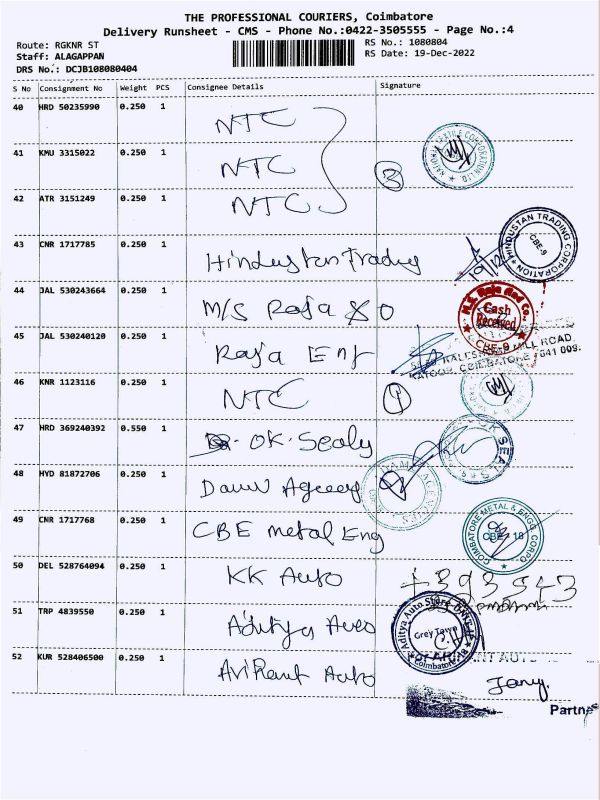 THE PROFESSIONAL COURIERS, Coimbatore
Delivery Runsheet - CMS - Phone No.:0422-3505555 - Page No.:4
Route: RGKNR ST
RS No.: 1080804
Staff: ALAGAPPAN
RS Date: 19-Dec-2022
DRS No.: DCJB108080404
S No Consignment No Weight PCS Consignee Details Signature
40 HRD 50235990 0.250 1 NTC
41 KMU 3315022 0.250 1 NTC 3
NATIONAL TEXTILE CORPORATION LTD.
42 ATR 3151249 0.250 1 NTC
43 CNR 1717785 0.250 1 Hindustan Trading
HINDUSTAN TRADING CORPORATION CBE-9
44 JAL 530243664 0.250 1 M/S Raja & O
Raja And Co. Cash Received CBE-9
45 JAL 530240120 0.250 1 Raja Eng
MILL ROAD
KATOOR, COIMBATORE - 641 009.
46 KNR 1123116 0.250 1 NTC 1
47 HRD 369240392 0.550 1 OK. Sealy
48 HYD 81872706 0.250 1
49 CNR 1717768 0.250 1 CBE metal Eng
COIMBATORE METAL & ENGG CORPO CBE - 18
50 DEL 528764094 0.250 1 KK Auto
51 TRP 4839550 0.250 1 Aditya Auto
Aditya Auto Store Grey Town Coimbatore
52 KUR 528406500 0.250 1 Arihant Auto
Partne